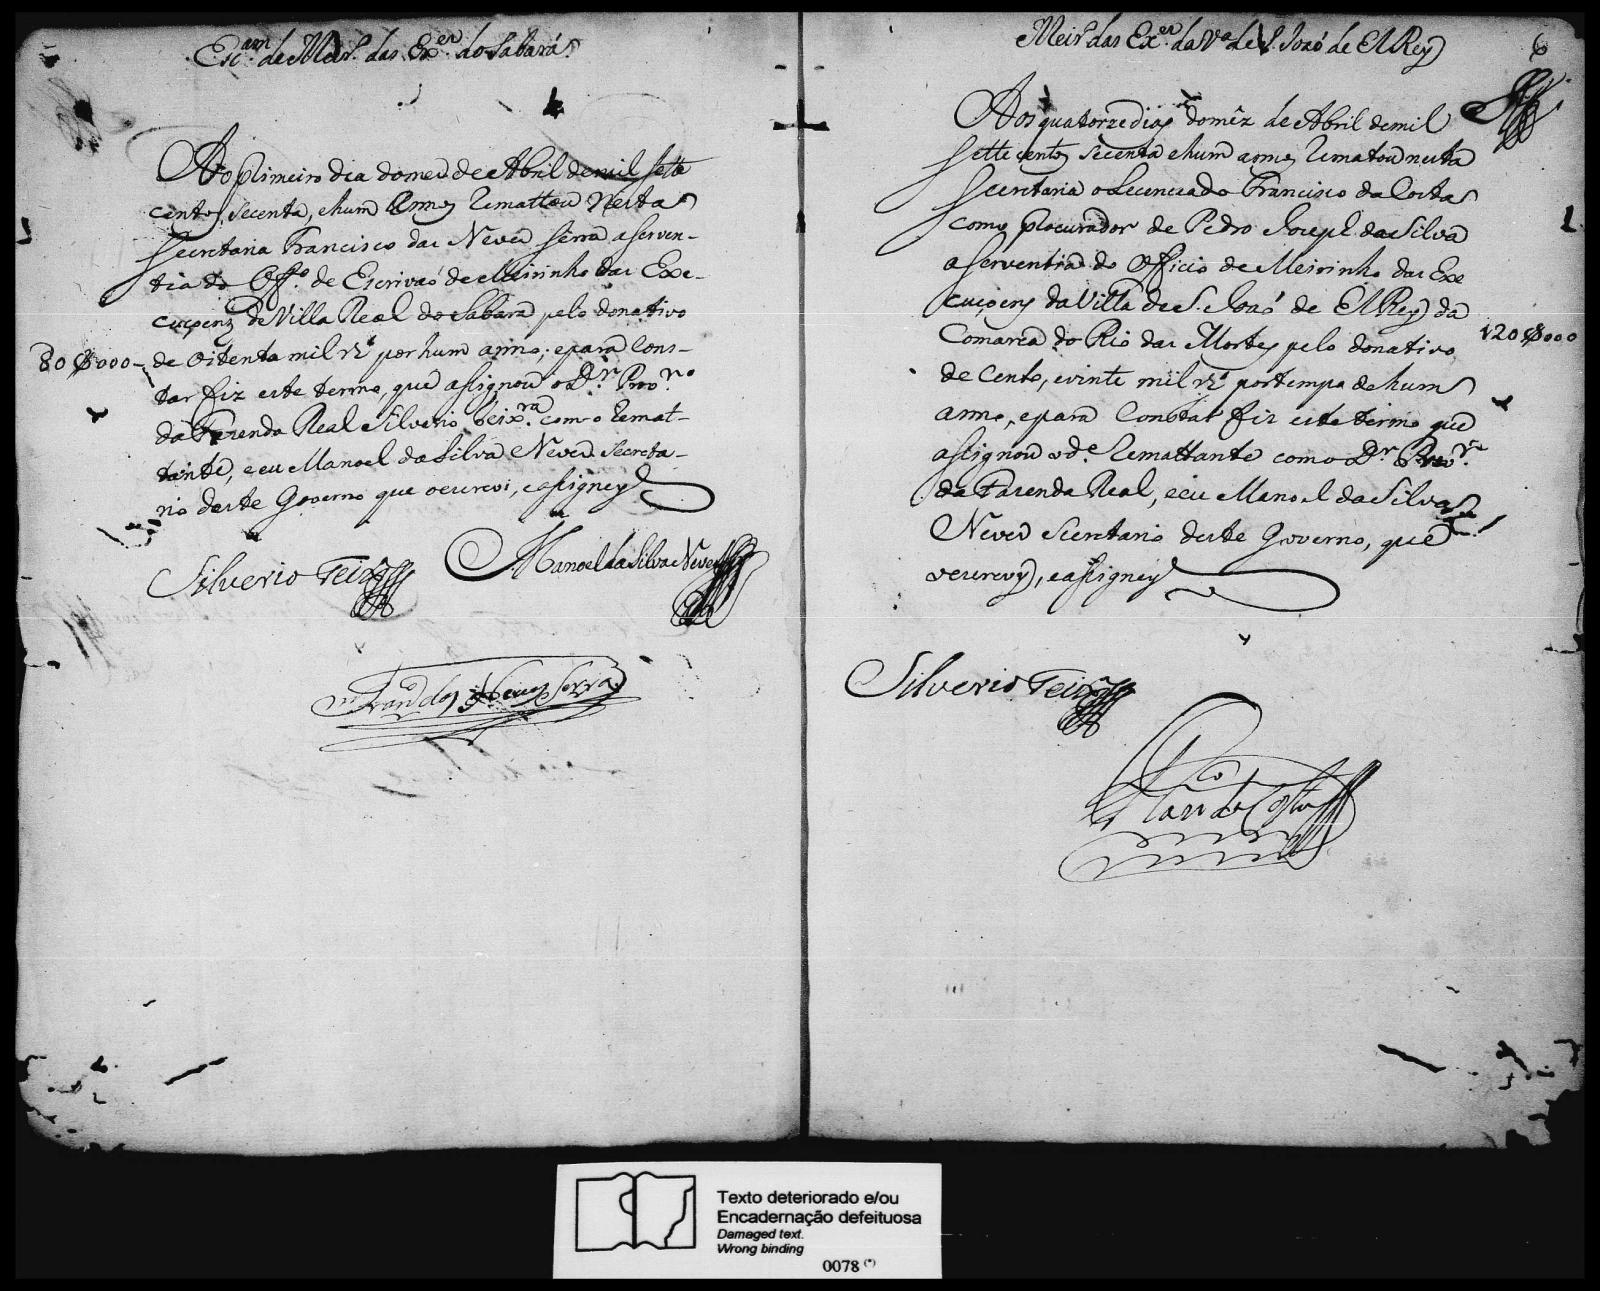 Esc.am de Meir.o das Ex.es do Sabará
Ao primeiro dia do mes de Abril de mil sette
centos, secenta, e hum Annos Remattou nesta
Secretaria Francisco das Neves Serra a serven-
tia do Off.o de Escrivaõ de Meirinho das Exe-
cuçoens de Villa Real do Sabará pelo donativo
80$000 - de oitenta mil r.s por hum anno; e para cons-
tar fiz este termo, que assignou o D.r Prov.or
da Fazenda Real Silverio Teix.ra com o Remat-
tante, e eu Manoel da Silva Neves Secreta-
rio deste Governo que o escrevi, e assigney
Silverio Teix.ra
Manoel da Silva Neves
Fran.co das Neves Serra
Meir.o das Ex.es da V.a de S. Joaõ de El Rey
6
Aos quatorze dias do mêz de Abril de mil
sette centos secenta e hum annos Rematou nesta
Secretaria o Lecenceado Francisco da Costa
como procurador de Pedro Joseph da Silva
a serventia do Officio de Meirinho das Exe
cuçoens da Villa de S. Joaõ de El Rey da
Comarca do Rio das Mortes pelo donativo 120$000
de cento, e vinte mil r.s por tempo de hum
anno, e para constar fiz este termo que
assignou o d.o Remattante com o D.r Prov.or
da Fazenda Real, e eu Manoel da Silva
Neves Secretario deste Governo, que
o escrevy, e assigney
Silverio Teix.ra
Fran.co da Costa
Texto deteriorado e/ou
Encadernação defeituosa
Damaged text.
Wrong binding
0078 (*)